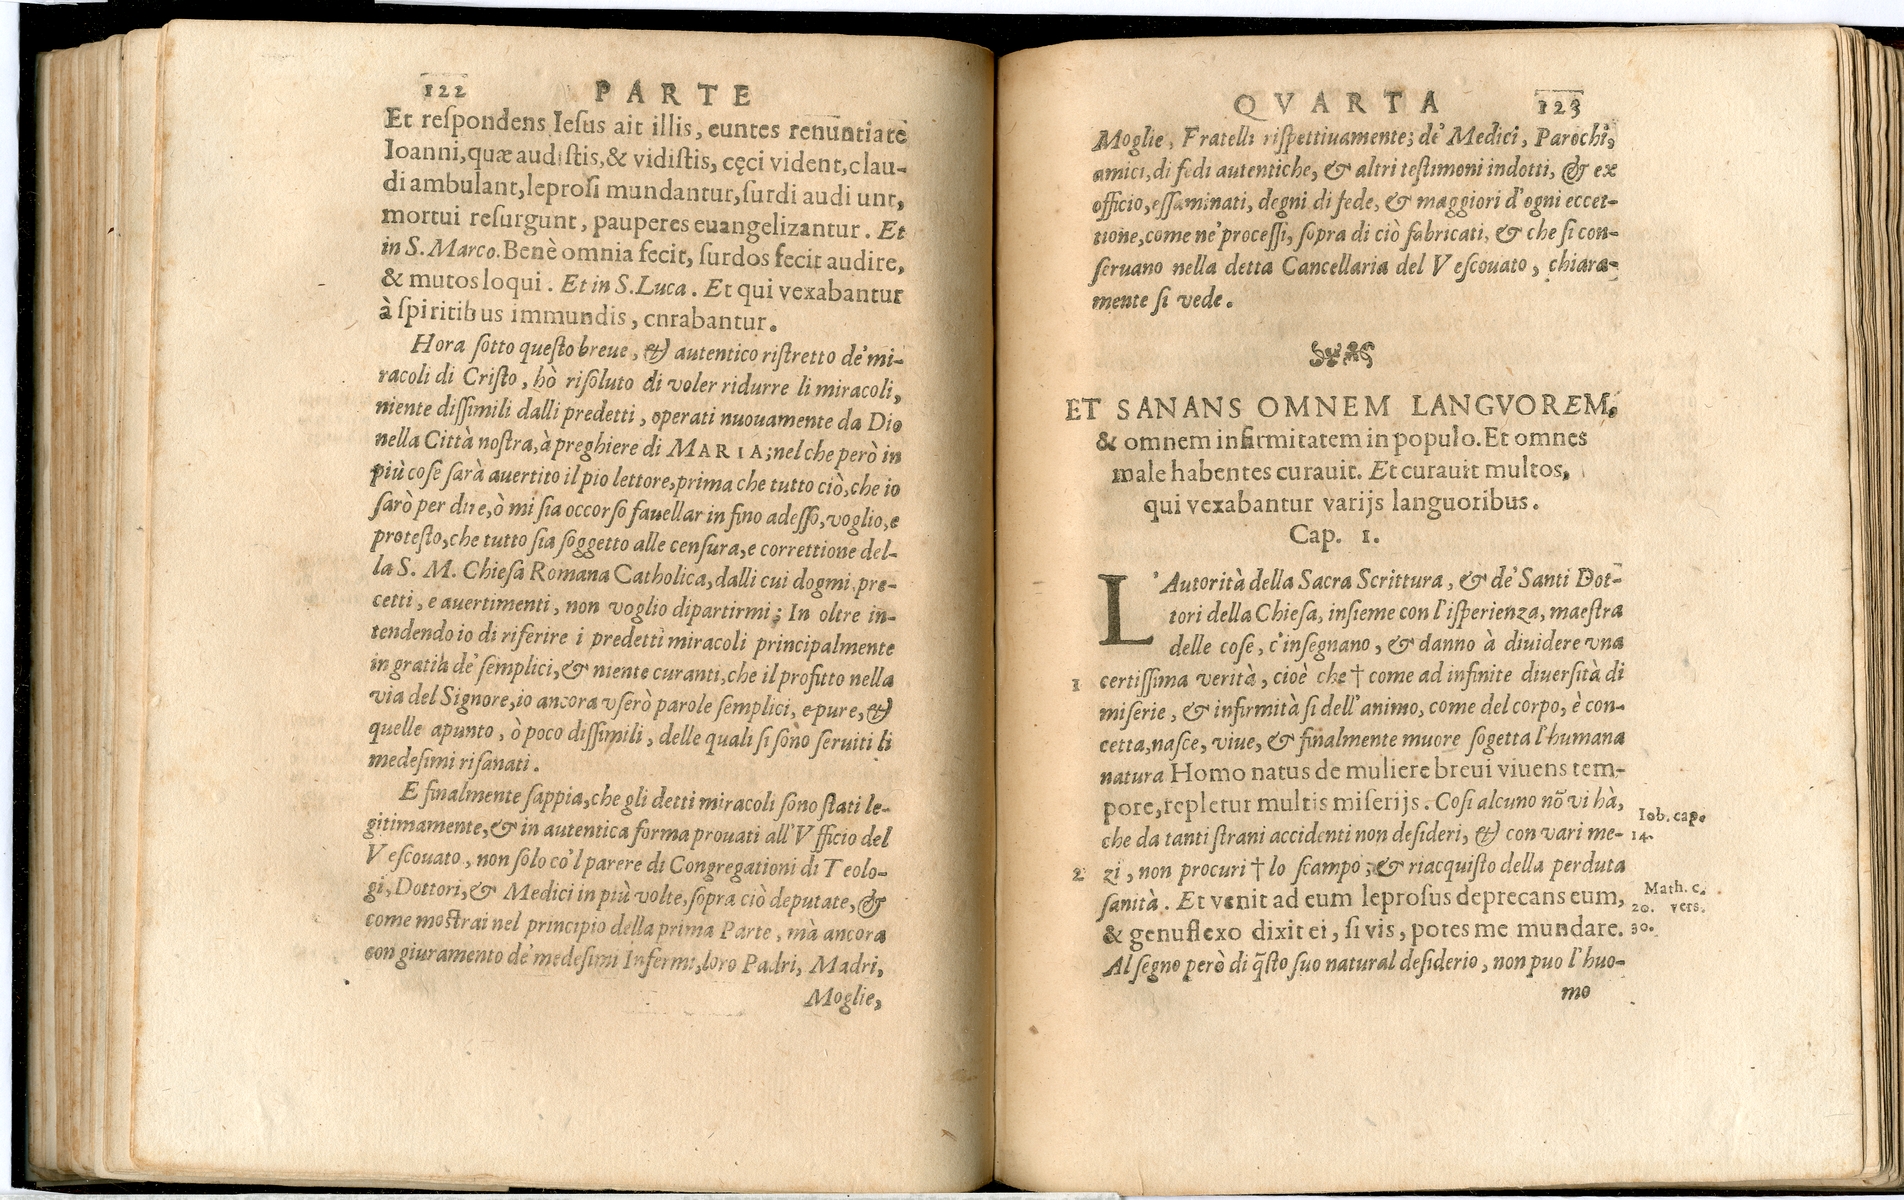 122 PARTE
Et respondens Iesus ait illis, euntes renuntiate
Ioanni, quæ audistis, & vidistis, cęci vident, clau-
di ambulant, leprosi mundantur, surdi audiunt,
mortui resurgunt, pauperes euangelizantur. Et
in S. Marco. Benè omnia fecit, surdos fecit audire,
& mutos loqui. Et in S. Luca. Et qui vexabantur
à spiritibus immundis, cnrabantur.
Hora sotto questo breue, & autentico ristretto de' mi-
racoli di Cristo, hò risoluto di voler ridurre li miracoli,
niente dissimili dalli predetti, operati nuouamente da Dio
nella Città nostra, à preghiere di MARIA; nel che però in
più cose sarà auertito il pio lettore, prima che tutto ciò, che io
sarò per dire, ò mi sia occorso fauellar in fino adesso, voglio, e
protesto, che tutto sia soggetto alle censura, e correttione del-
la S. M. Chiesa Romana Catholica, dalli cui dogmi, pre-
cetti, e auertimenti, non voglio dipartirmi; In oltre in-
tendendo io di riferire i predetti miracoli principalmente
in gratia de' semplici, & niente curanti, che il profitto nella
via del Signore, io ancora vserò parole semplici, e pure, &
quelle apunto, ò poco dissimili, delle quali si sono seruiti li
medesimi risanati.
E finalmente sappia, che gli detti miracoli sono stati le-
gitimamente, & in autentica forma prouati all'Vfficio del
Vescouato, non solo co'l parere di Congregationi di Teolo-
gi, Dottori, & Medici in più volte, sopra ciò deputate, &
come mostrai nel principio della prima Parte, mà ancora
con giuramento de' medesimi Infermi, loro Padri, Madri,
Moglie,
QVARTA 123
Moglie, Fratelli rispettiuamente; de' Medici, Parochi,
amici, di fedi autentiche, & altri testimoni indotti, & ex
officio, essaminati, degni di fede, & maggiori d'ogni eccet-
tione, come ne' processi, sopra di ciò fabricati, & che si con-
seruano nella detta Cancellaria del Vescouato, chiara-
mente si vede.
ET SANANS OMNEM LANGVOREM,
& omnem infirmitatem in populo. Et omnes
male habentes curauit. Et curauit multos,
qui vexabantur varijs languoribus.
Cap. 1.
L'Autorità della Sacra Scrittura, & de' Santi Dot-
tori della Chiesa, insieme con l'isperienza, maestra
delle cose, c'insegnano, & danno à diuidere vna
1 certissima verità, cioè che † come ad infinite diuersità di
miserie, & infirmità si dell'animo, come del corpo, è con-
cetta, nasce, viue, & finalmente muore sogetta l'humana
natura Homo natus de muliere breui viuens tem-
pore, repletur multis miserijs. Cosi alcuno nõ vi hà,
Iob. cap.
14.
che da tanti strani accidenti non desideri, & con vari me-
2 zi, non procuri † lo scampo, & riacquisto della perduta
sanità. Et venit ad eum leprosus deprecans eum,
Math. c.
20. vers.
30.
& genuflexo dixit ei, si vis, potes me mundare.
Al segno però di q̃sto suo natural desiderio, non puo l'huo-
mo